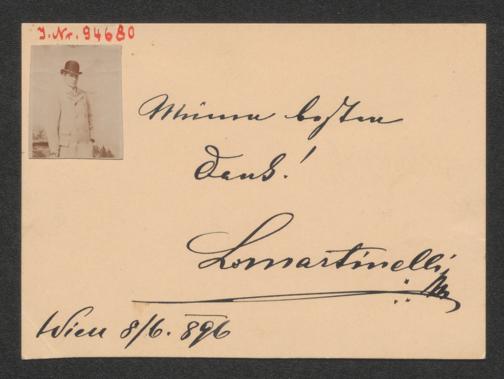 I.Nr. 94680
Meinen besten
Dank!
Lomartinelli
Wien 8/6. 896